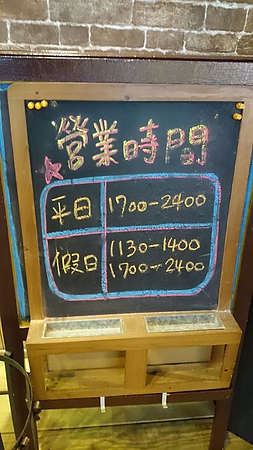 營業時間
平日 1700-2400
假日 1130-1400
1700-2400